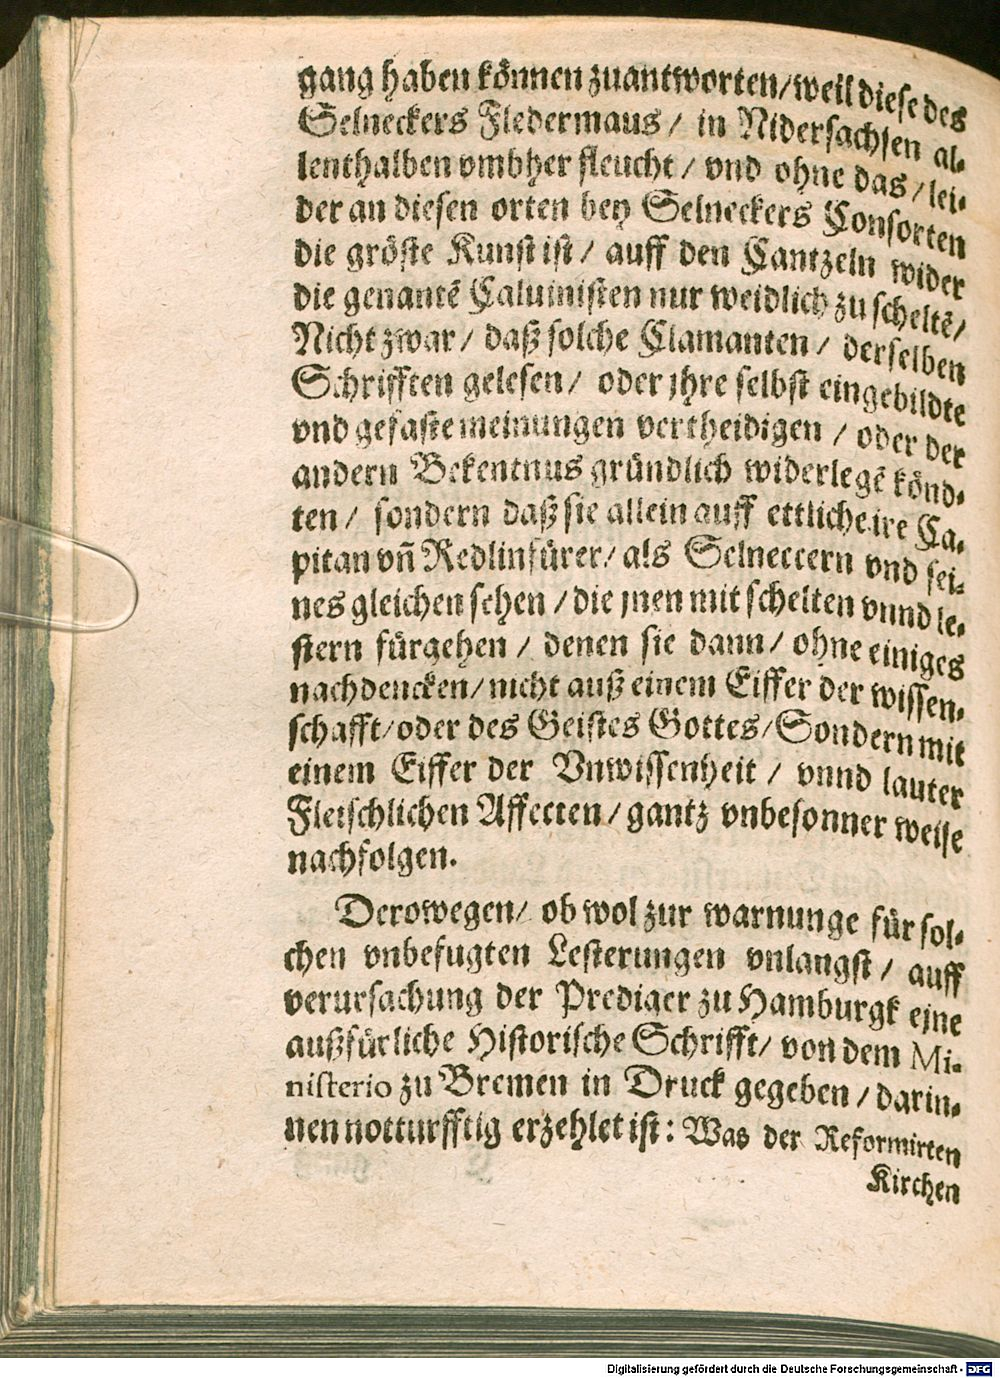 gang haben können zuantworten/weil diese des
Selneckers Fledermaus/ in Nidersachsen al-
lenthalben vmbher fleucht/ vnd ohne das/lei-
der an diesen orten bey Selneckers Consorten
die gröste Kunst ist/ auff den Cantzeln wider
die genantē Caluinisten nur weidlich zu scheltē/
Nicht zwar/ daß solche Clamanten/ derselben
Schrifften gelesen/ oder jhre selbst eingebildte
vnd gefaste meinungen vertheidigen / oder der
andern Bekentnus gründlich widerlegē könd-
ten/ sondern daß sie allein auff ettliche ire Ca-
pitan vñ Redlinfürer/ als Selneccern vnd sei-
nes gleichen sehen /die jnen mit schelten vnnd le-
stern fürgehen / denen sie dann/ ohne einiges
nachdencken/nicht auß einem Eiffer der wissen-
schafft/oder des Geistes Gottes/Sondern mit
einem Eiffer der Vnwissenheit / vnnd lauter
Fleischlichen Affecten/gantz vnbesonner weise
nachfolgen.
Derowegen/ ob wol zur warnunge für sol-
chen vnbefugten Lesterungen vnlangst/ auff
verursachung der Prediger zu Hamburgk eine
außfürliche Historische Schrifft/ von dem Mi-
nisterio zu Bremen in Druck gegeben /darin-
nen notturfftig erzehlet ist: Was der Reformirten
Kirchen
Digitalisierung gefördert durch die Deutsche Forschungsgemeinschaft - DFG